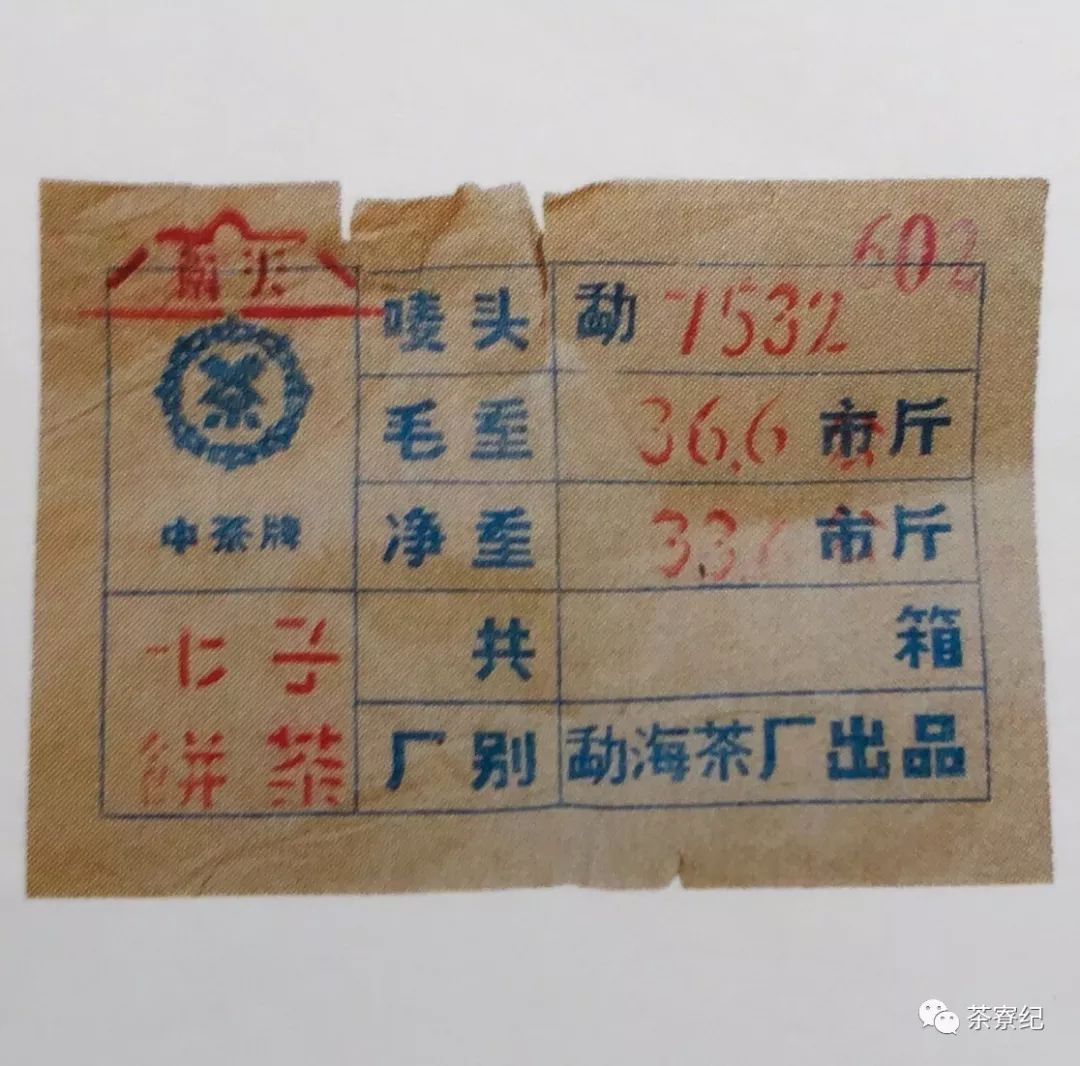 602
唛头 勐 7532
茶
毛重 36.6 市斤
中茶牌
净重 33. 市斤
七子
共 箱
餅茶
厂别 勐海茶厂出品
茶寮纪